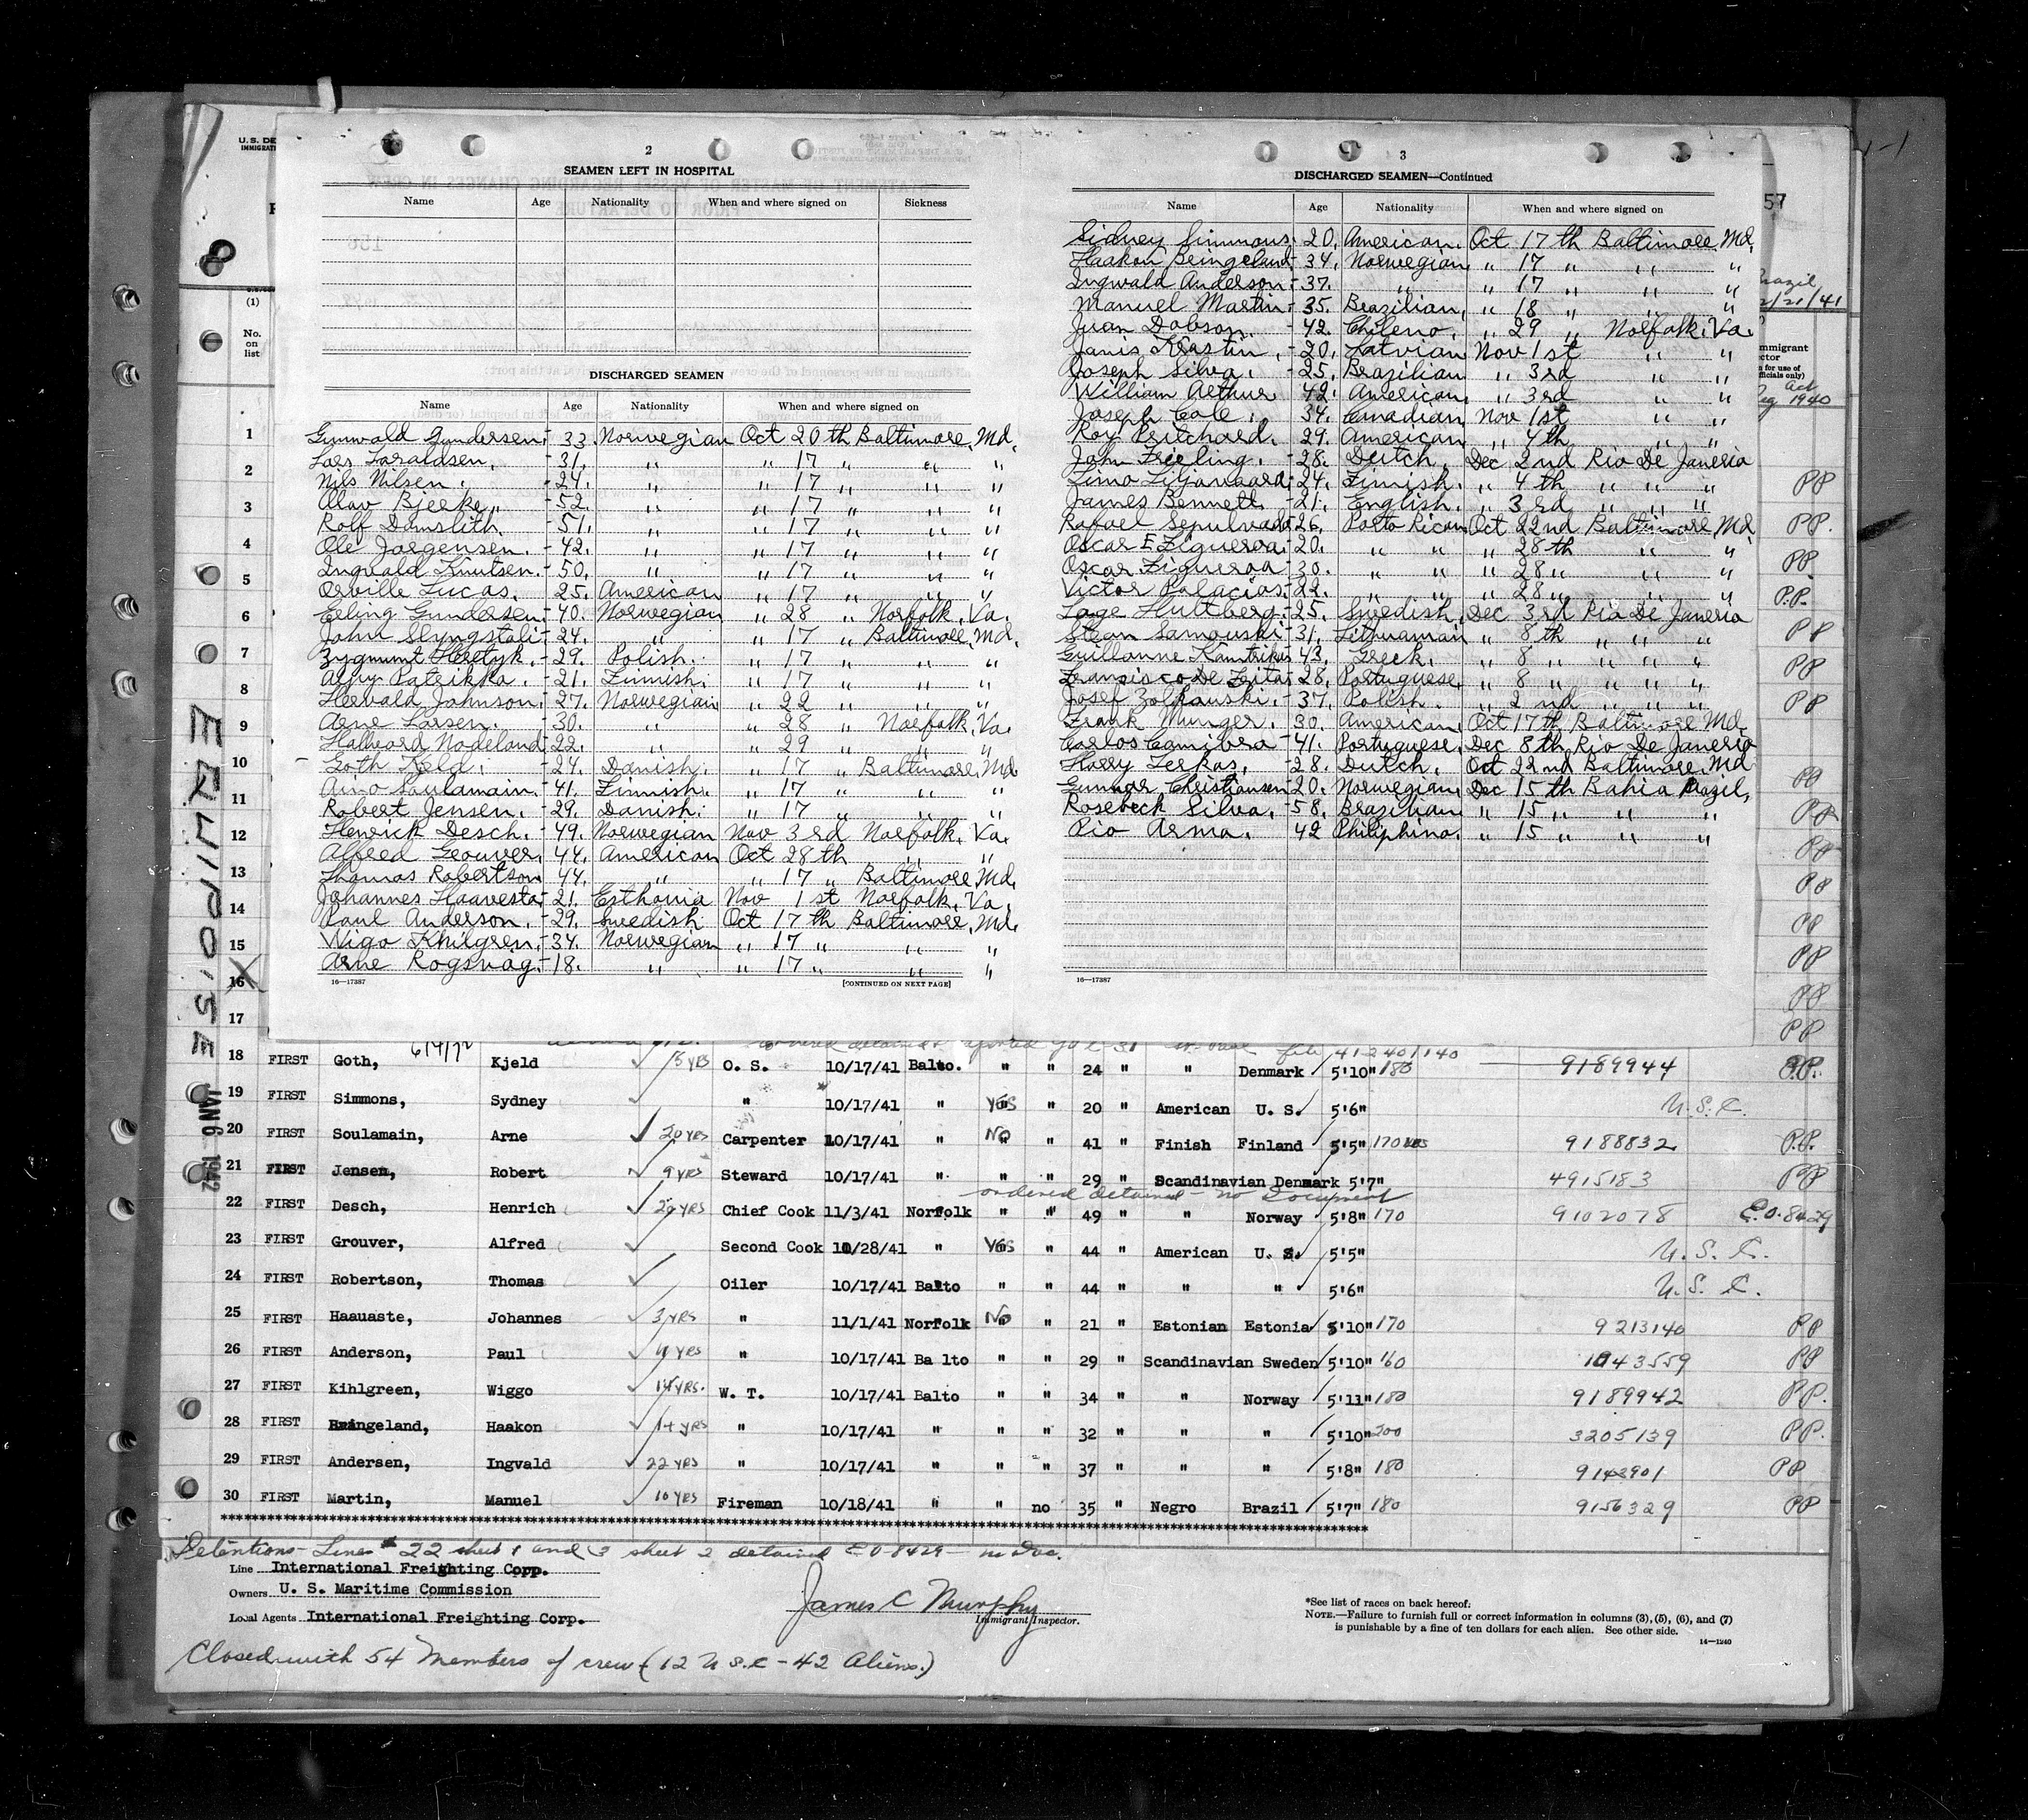 U.S. DE
IMMIGRAT
2
SEAMEN LEFT IN HOSPITAL
Name Age Nationality When and where signed on Sickness
DISCHARGED SEAMEN
Name Age Nationality When and where signed on
Gunwald Gundersen. 33. Norwegian Oct 20th Baltimore, Md.
Lars Taraldsen. 31. " " 17 " " "
Nils Nilsen. 24. " " 17 " " "
Olav Bjerke. 52. " " 17 " " "
Rolf Damslith 51. " " 17 " " "
Ole Jorgensen. 42. " " 17 " " "
Ingvald Knutsen. 50. " " 17 " " "
Orville Lucas. 25. American " 17 " " "
Erling Gundersen 40. Norwegian " 28 " Norfolk. Va.
John Slyngstali 24. " " 17 " Baltimore, Md.
Zygmunt Heretyk. 29. Polish. " 17 " " "
Arjy Patrikka. 21. Finnish. " 17 " " "
Hervald Johnson. 27. Norwegian " 22 " " "
Arne Larsen. 30. " " 28 " Norfolk. Va.
Halvard Nodeland 22. " " 29 " " "
Goth Keld. 24. Danish. " 17 " Baltimore, Md
Aino Saulamain. 41. Finnish. " 17 " " "
Robert Jensen. 29. Danish. " 17 " " "
Henrick Desch. 49. Norwegian Nov 3rd Norfolk. Va.
Alfred Grouver. 44. American Oct 28th " "
Thomas Robertson 44. " " 17 " Baltimore, Md.
Johannes Haavesta 21. Esthonia Nov 1st Norfolk. Va.
Paul Anderson. 29. Swedish Oct 17th Baltimore, Md.
Wigo Khilgren. 34. Norwegian " 17 " " "
Arne Rogsvag. 18. " " 17 " " "
16—17387 [CONTINUED ON NEXT PAGE]
3
DISCHARGED SEAMEN—Continued
Name Age Nationality When and where signed on
Sidney Simmons. 20. American. Oct 17th Baltimore Md.
Haakon Bringeland 34. Norwegian " 17 " " "
Ingwald Anderson. 37. " " 17 " " "
Manuel Martin. 35. Brazilian. " 18 " " "
Juan Dobson. 42. Chileno. " 29 " Norfolk. Va.
Janis Krastin. 20. Latvian Nov 1st " "
Joseph Silva. 25. Brazilian " 3rd " "
William Arthur 42. American. " 3rd " "
Joseph Cole. 34. Canadian Nov 1st " "
Roy Pritchard. 29. American " 4th " "
John Frieling. 28. Dutch. Dec 2nd Rio De Janeria
Timo Liljamaara. 24. Finish. " 4th " " "
James Bennett. 21. English. " 3rd " " "
Rafael Sepulvada 26. Porto Rican Oct 22nd Baltimore, Md
Oscar E Figueroa. 20. " " " 28th " "
Oscar Figueroa 30. " " " 28 " " "
Victor Palacias. 22. " " " 28 " " "
Lage Hultberg. 25. Swedish. Dec 3rd Rio De Janeria
Stean Samouski 31. Lithuanian " 8th " " "
Guillanne Kamtrikas 43. Greek. " 8 " " " "
Fransisco De Frita 28. Portuguese. " 8 " " " "
Josef Zolkauski. 37. Polish. " 2nd " " "
Frank Munger. 30. American Oct 17th Baltimore Md.
Carlos Camibra 41. Portuguese. Dec 8th Rio De Janeria
Harry Lerkas. 28. Dutch. Oct 22nd Baltimore Md
Gunnar Christiansen 20. Norwegian. Dec 15th Bahia Brazil.
Rosebeck Silva. 58. Brazilian " 15 " " "
Pio Arma. 42 Philiphino. " 15 " " "
16—17387
57
Brazil
2/21/41
mmigrant
ctor
n for use of
fficials only)
Act
1940
(1)
No. on list
1
2
3
4
5
6
7
8
9
10
11
12
13
14
15
16
17
EQUIPO'SE
JAN 6 1942
18 FIRST Goth, Kjeld 15 YRS O. S. 10/17/41 Balto. " " 24 " " Denmark 5'10" 180 9189944 P.P.
19 FIRST Simmons, Sydney " 10/17/41 " YES " 20 " American U. S. 5'6" U.S.C.
20 FIRST Soulamain, Arne 20 YRS Carpenter 10/17/41 " NO " 41 " Finish Finland 5'5" 170 LBS 9188832 P.P.
21 FIRST Jensen, Robert 9 YRS Steward 10/17/41 " " " 29 " Scandinavian Denmark 5'7" 4915183 PP
ordered detained - no Document
22 FIRST Desch, Henrich 20 YRS Chief Cook 11/3/41 Norfolk " " 49 " " Norway 5'8" 170 9102078 E.O. 8429
23 FIRST Grouver, Alfred Second Cook 10/28/41 " YES " 44 " American U. S. 5'5" U.S.C.
24 FIRST Robertson, Thomas Oiler 10/17/41 Balto " " 44 " " " 5'6" U.S.C.
25 FIRST Haauaste, Johannes 3 YRS " 11/1/41 Norfolk NO " 21 " Estonian Estonia 5'10" 170 9213140 PP
26 FIRST Anderson, Paul 4 YRS " 10/17/41 Ba lto " " 29 " Scandinavian Sweden 5'10" 160 1043559 PP
27 FIRST Kihlgreen, Wiggo 14 YRS. W. T. 10/17/41 Balto " " 34 " " Norway 5'11" 180 9189942 P.P.
28 FIRST Bringeland, Haakon 14 YRS " 10/17/41 " " " 32 " " " 5'10" 200 3205139 P.P.
29 FIRST Andersen, Ingvald 22 YRS " 10/17/41 " " " 37 " " " 5'8" 180 9143901 PP
30 FIRST Martin, Manuel 10 YRS Fireman 10/18/41 " " no 35 " Negro Brazil 5'7" 180 9156329 PP
Detentions - Lines # 22 sheet 1 and 3 sheet 2 detained E O 8429 - no Doc.
Line International Freighting Corp.
Owners U. S. Maritime Commission
Local Agents International Freighting Corp.
James C Murphy
Immigrant Inspector.
*See list of races on back hereof.
NOTE.—Failure to furnish full or correct information in columns (3), (5), (6), and (7)
is punishable by a fine of ten dollars for each alien. See other side.
14—1240
Closed with 54 Members of crew (12 U S.C - 42 Aliens.)